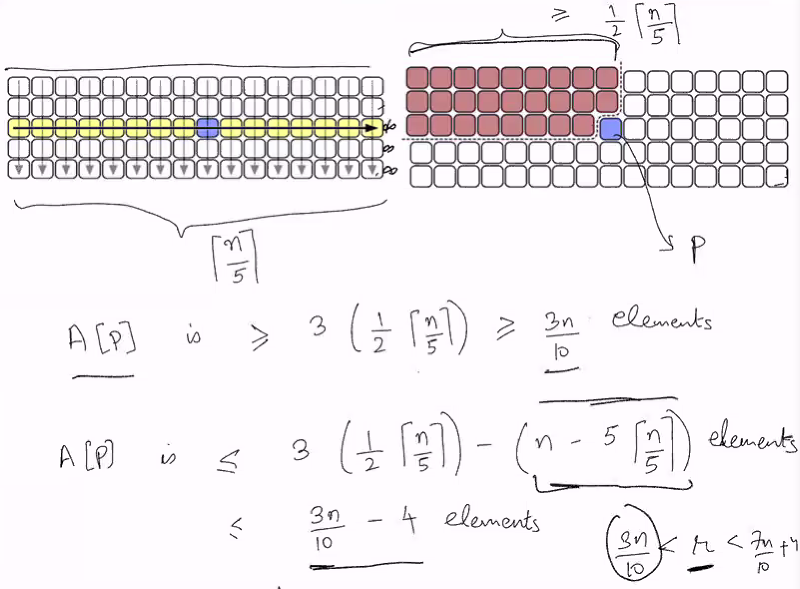 ≥ 1/2 ⌈n/5⌉
∞
∞
∞
⌈n/5⌉
P
A[P] is ≥ 3 (1/2 ⌈n/5⌉) ≥ 3n/10 elements
A[P] is ≤ 3 (1/2 ⌈n/5⌉) - (n - 5 ⌈n/5⌉) elements
≤ 3n/10 - 4 elements
3n/10 < r < 7n/10 + 4